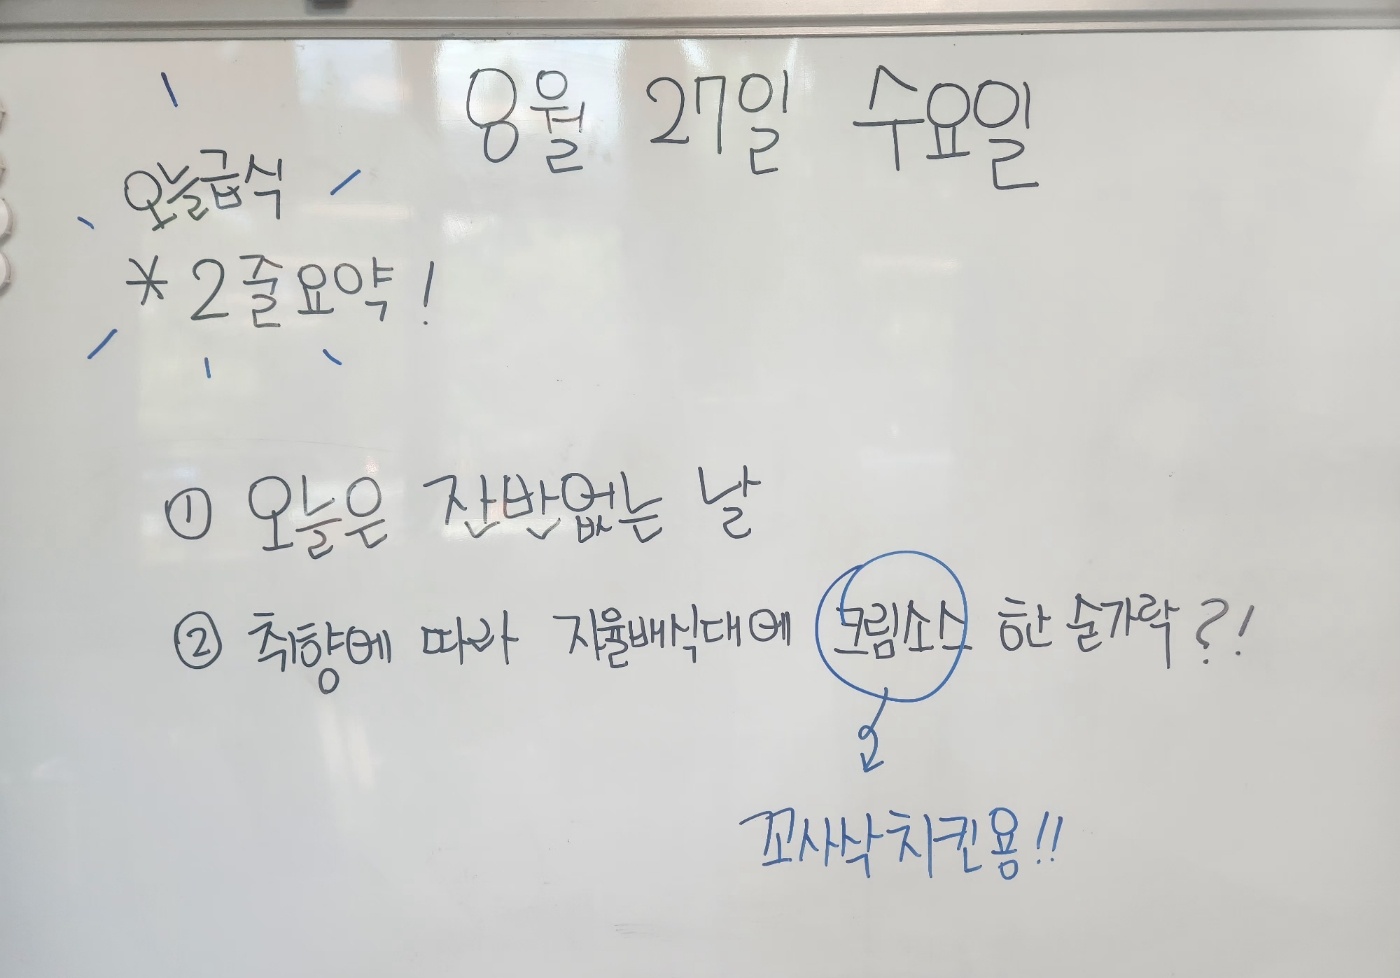 8월 27일 수요일
오늘급식
* 2줄요약!
① 오늘은 잔반없는 날
② 취향에 따라 자율배식대에 크림소스 한 숟가락?!
꼬사삭치킨용!!